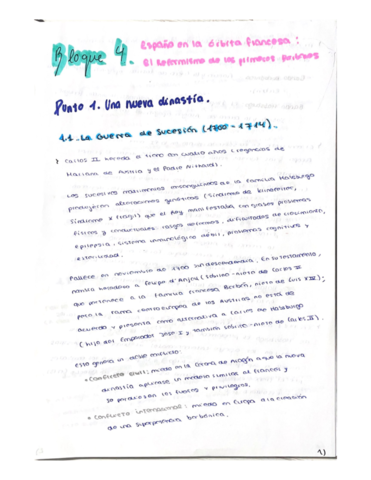 Bloque 4. España en la órbita francesa:
El reformismo de los primeros Borbones
Punto 1. Una nueva dinastía.
1.1. La Guerra de Sucesión (1700-1714).
Carlos II hereda el trono con cuatro años (regencias de
Mariana de Austria y el Padre Nithard).
Los sucesivos matrimonios endogámicos de la familia Habsburgo
produjeron alteraciones genéticas (Síndrome de Klinefelter,
Síndrome X frágil) que el Rey manifestaba con graves problemas
físicos y conductuales: rasgos deformes, dificultades de crecimiento,
epilepsia, sistema inmunológico débil, problemas cognitivos y
esterilidad.
Fallece en noviembre de 1700 sin descendencia. En su testamento,
nombra heredero a Felipe d'Anjou (sobrino-nieto de Carlos II
que pertenece a la familia francesa Borbón, nieto de Luis XIV);
pero la rama centroeuropea de los Austrias no está de
acuerdo y presenta como alternativa a Carlos de Habsburgo
(hijo del Emperador I y también sobrino-nieto de Carlos II).
Esto genera un doble conflicto:
• Conflicto civil: miedo en la Corona de Aragón a que la nueva
dinastía aplicase un modelo similar al francés y
se perdiesen los fueros y privilegios.
• Conflicto internacional: miedo en Europa a la creación
de una superpotencia borbónica.
1)